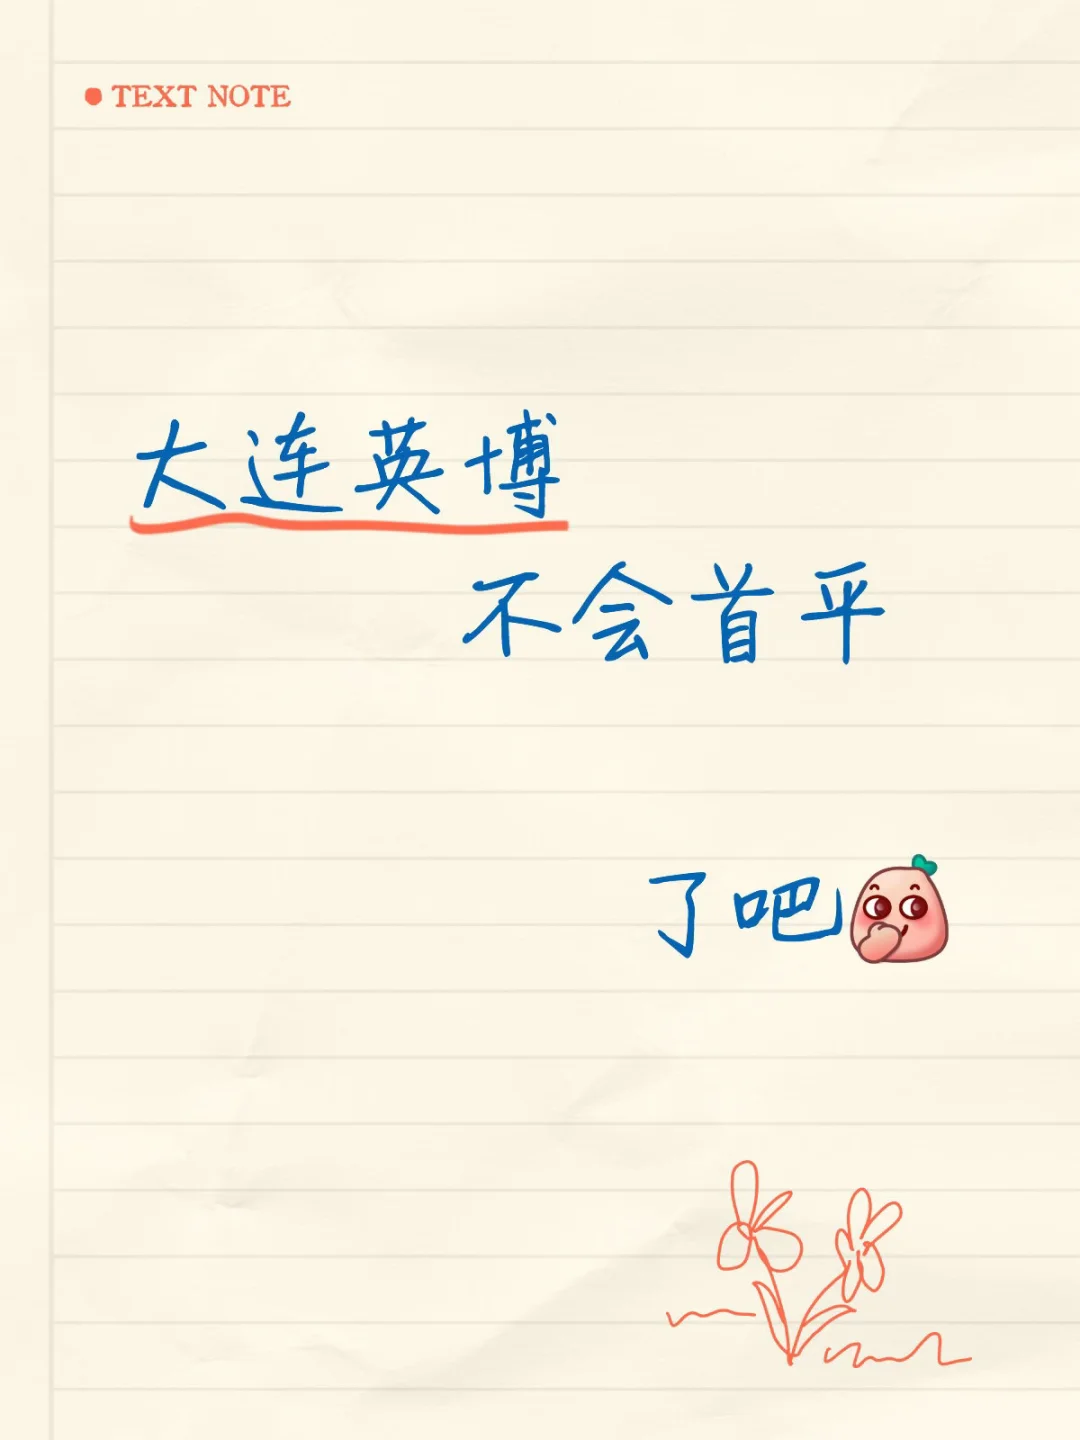 TEXT NOTE
大连英博
不会首平
了吧